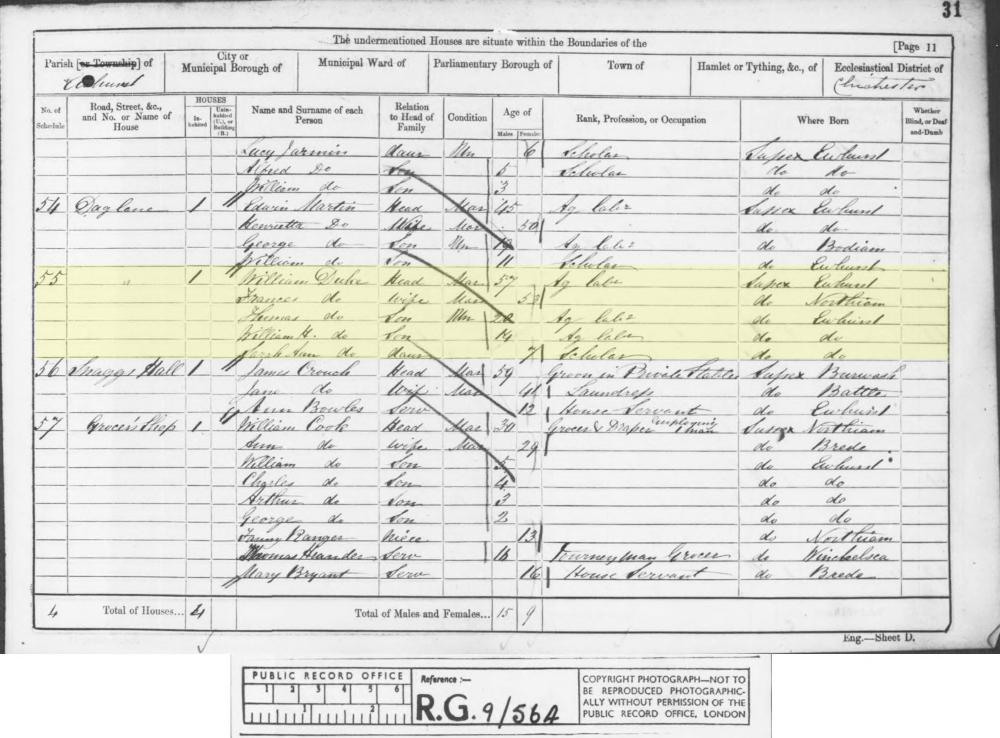 31
The undermentioned Houses are situate within the Boundaries of the
[Page 11
Parish [or Township] of City or Municipal Borough of Municipal Ward of Parliamentary Borough of Town of Hamlet or Tything, &c., of Ecclesiastical District of
Chichester
No. of Schedule Road, Street, &c., and No. or Name of House HOUSES Inhabited Uninhabited (U.), or Building (B.) Name and Surname of each Person Relation to Head of Family Condition Age of Males Females Rank, Profession, or Occupation Where Born Whether Blind, or Deaf and-Dumb
Lucy Jarmin daur Un 6 Scholar Sussex Ewhurst
Alfred Do Son 5 Scholar do do
William do Son 3 do do
54 Daglane 1 Edwin Martin Head Mar 45 Ag labr Sussex Ewhurst
Henrietta Do Wife Mar 50 do do
George do Son Un 19 Ag labr do Bodiam
William do Son 11 Scholar do Ewhurst
55 " 1 William Duke Head Mar 57 Ag labr Sussex Ewhurst
Frances do wife Mar 53 do Northiam
Thomas do Son Un 20 Ag labr do Ewhurst
William H. do Son 14 Ag labr do do
Sarah Ann do daur 7 Scholar do do
56 Snaggs Hall 1 James Crouch Head Mar 59 Groom in Private Stables Sussex Burwash
Jane do Wife Mar Laundress do Battle
Ann Bowles Serv 12 House Servant do Ewhurst
57 Grocer's Shop 1 William Cook Head Mar 30 Grocer & Draper employing 1 man Sussex Northiam
Ann do wife Mar 29 do Brede
William do Son 5 do Ewhurst
Charles do Son 4 do do
Arthur do Son 3 do do
George do Son 2 do do
Fanny Ranger Niece 13 do Northiam
Thomas Serv Journeyman Grocer do Winchelsea
Mary Bryant Serv 16 House Servant do Brede
4 Total of Houses... 4 Total of Males and Females... 15 9
Eng.—Sheet D.
PUBLIC RECORD OFFICE
1 2 3 4 5 6
1 2
Reference :-
R.G. 9/564
COPYRIGHT PHOTOGRAPH—NOT TO
BE REPRODUCED PHOTOGRAPHIC-
ALLY WITHOUT PERMISSION OF THE
PUBLIC RECORD OFFICE, LONDON